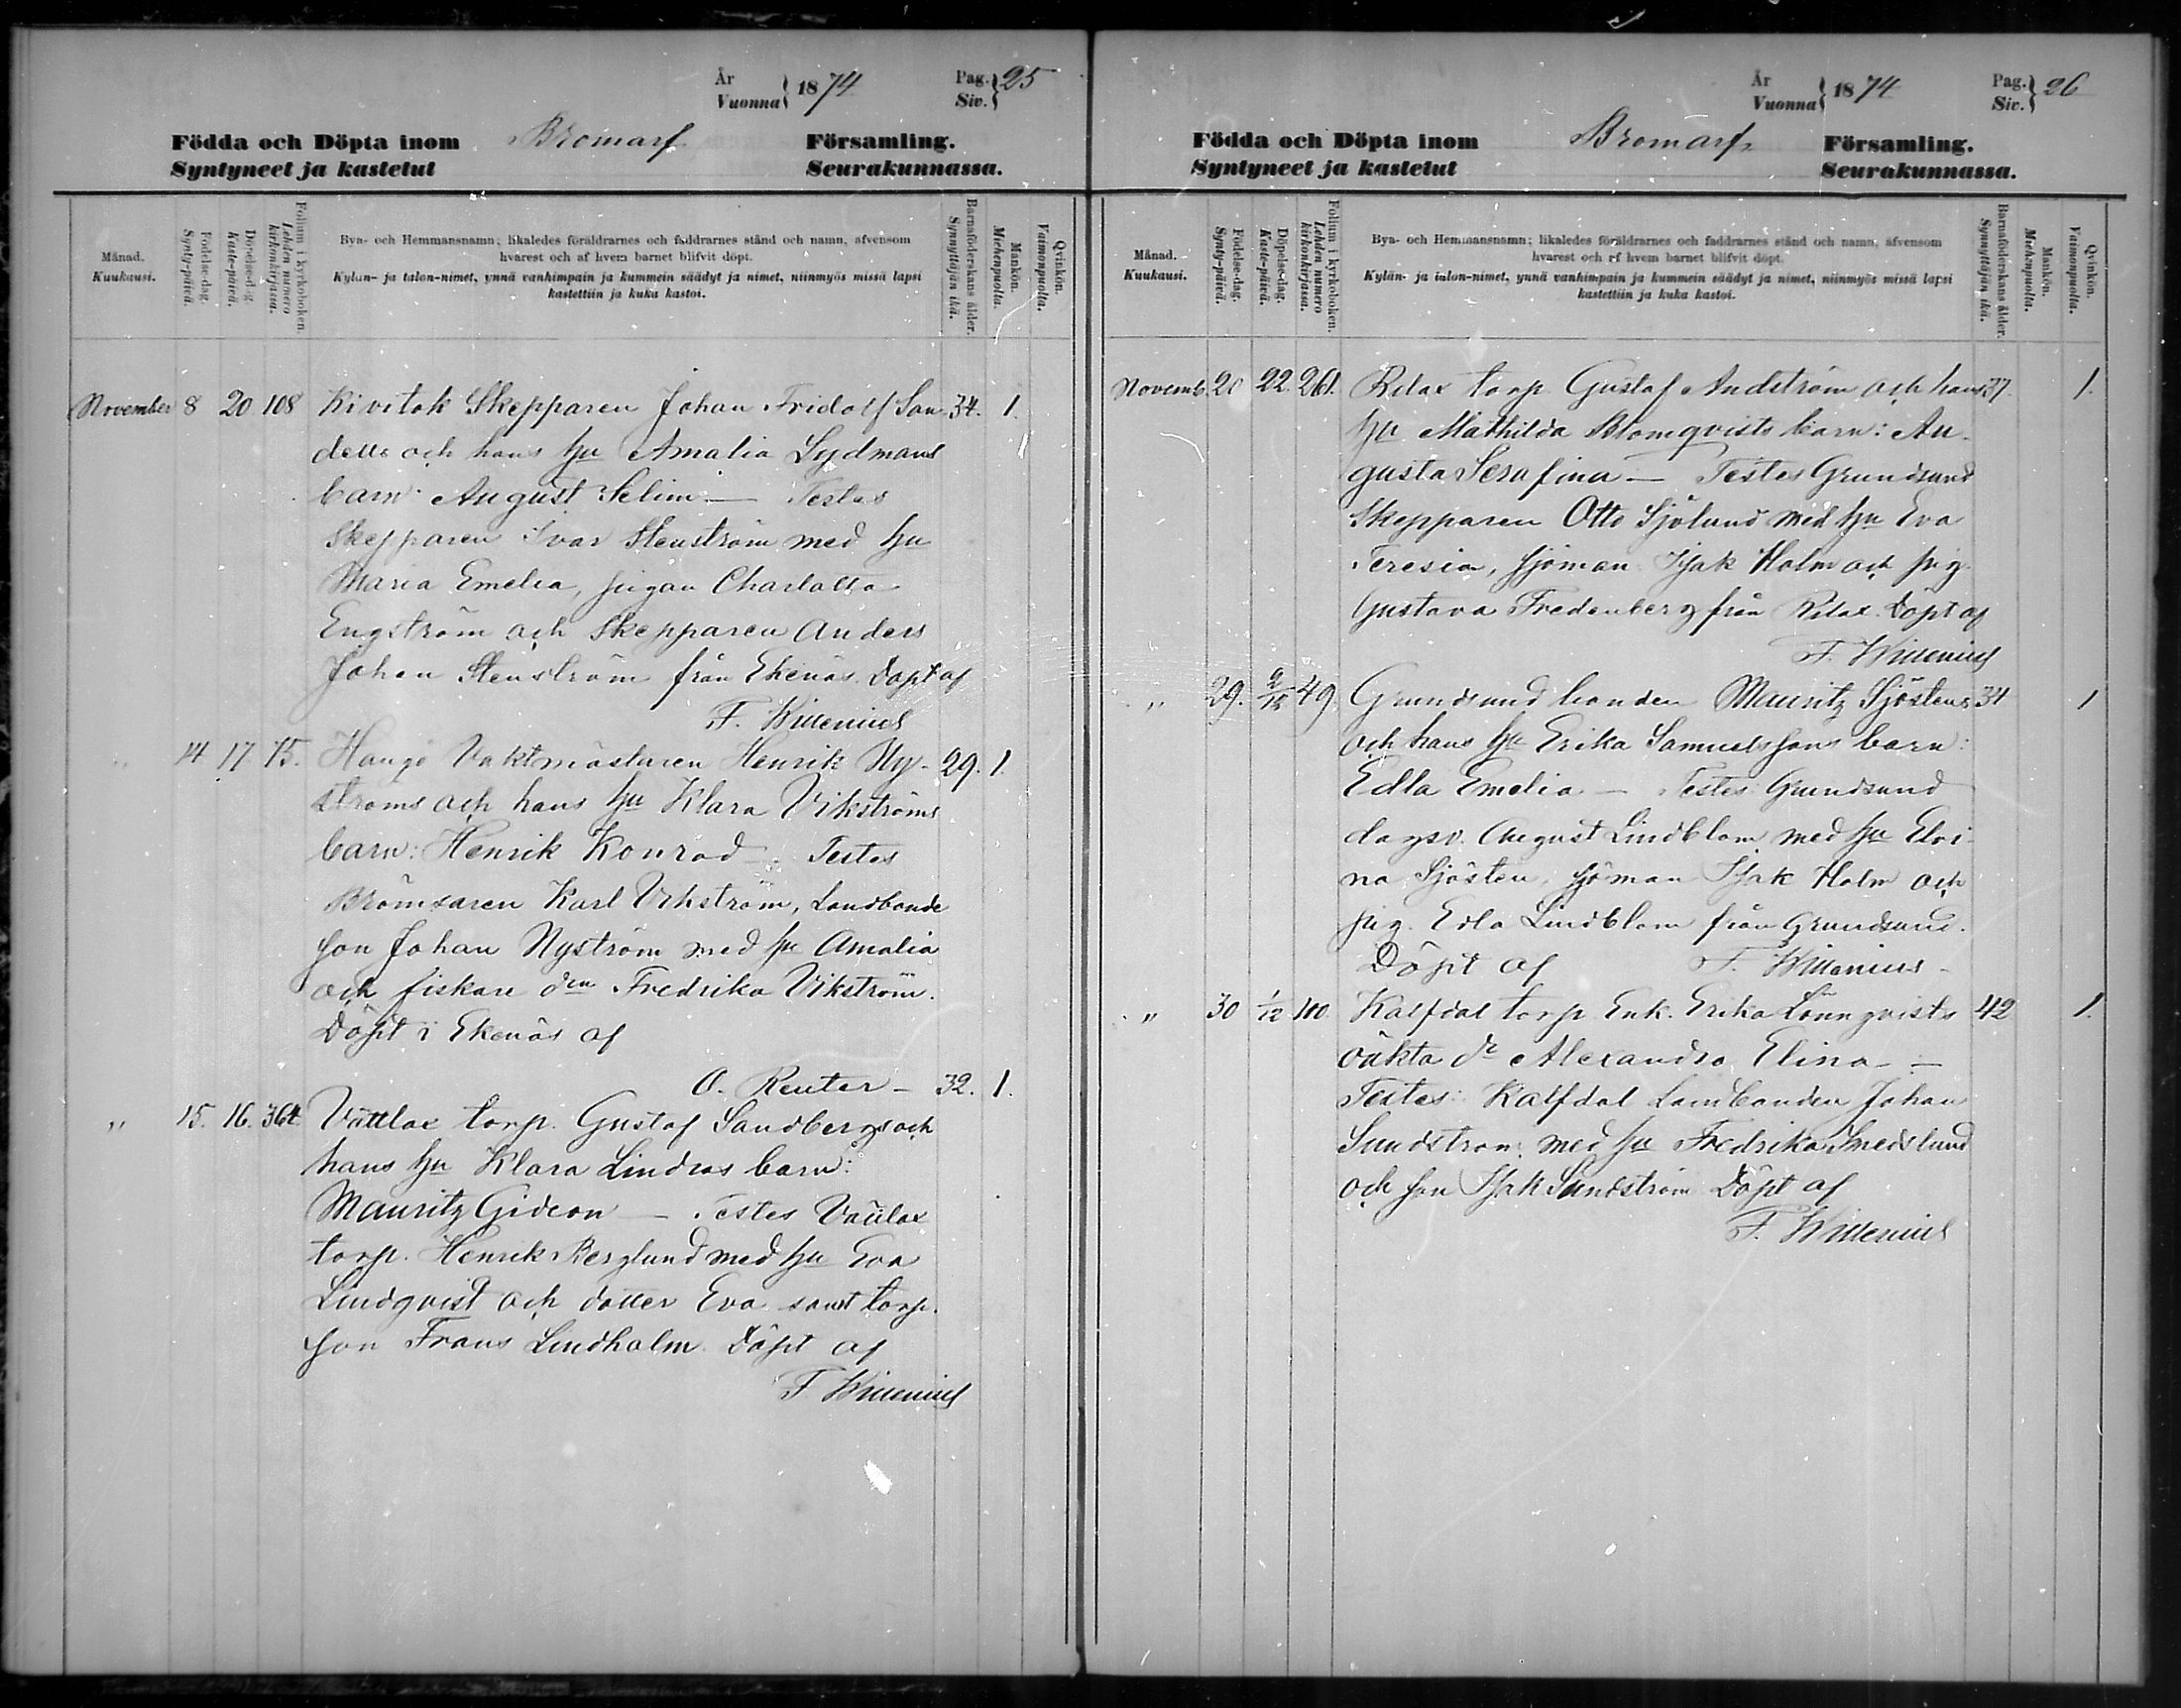 År
Vuonna } 1874
Pag.
Siv. } 25
Födda och Döpta inom Bromarf Församling.
Syntyneet ja kastetut Seurakunnassa.
Månad.
Kuukausi.
Födelse-dag.
Synty-päivä.
Döpelse-dag.
Kaste-päivä.
Folium i kyrkoboken.
Lehden numero kirkonkirjassa.
Bya- och Hemmansnamn; likaledes föräldrarnes och faddrarnes stånd och namn, äfvensom
hvarest och af hvem barnet blifvit döpt.
Kylän- ja talon-nimet, ynnä vanhimpain ja kummein säädyt ja nimet, niinmyös missä lapsi
kastettiin ja kuka kastoi.
Barnaföderskans ålder.
Synnyttäjän ikä.
Mankön.
Miehenpuolta.
Qvinkön.
Vaimonpuolta.
November 8 20 108 Kivitok Skepparen Johan Fridolf San 34. 1.
dells och hans hu Amalia Lydmans
barn: August Selim — Testes
Skepparen Ivar Stenström med hu
Maria Emelia, pigan Charlotta
Engström och Skepparen Anders
Johan Stenström från Ekenäs. Döpt af
F. Willenius
" 14 17. 75. Hangö Vaktmästaren Henrik Ny- 29. 1.
ströms och hans hu Klara Vikströms
barn: Henrik Konrad — Testes
Bromsaren Karl Vikström, Landbonde
son Johan Nyström med hu Amalia
och fiskare drn Fredrika Vikström.
Döpt i Ekenäs af
O. Reuter — 32. 1.
" 15. 16. 364 Vättlax torp. Gustaf Sandbergs och
hans hu Klara Lindros barn:
Mauritz Gideon — Testes Vättlax
torp. Henrik Berglund med hu Eva
Lindqvist och dotter Eva samt torp.
son Frans Lindholm. Döpt af
F Willenius
År
Vuonna } 1874
Pag.
Siv. } 26
Födda och Döpta inom Bromarf Församling.
Syntyneet ja kastetut Seurakunnassa.
Månad.
Kuukausi.
Födelse-dag.
Synty-päivä.
Döpelse-dag.
Kaste-päivä.
Folium i kyrkoboken.
Lehden numero kirkonkirjassa.
Bya- och Hemmansnamn; likaledes föräldrarnes och faddrarnes stånd och namn, äfvensom
hvarest och af hvem barnet blifvit döpt.
Kylän- ja talon-nimet, ynnä vanhimpain ja kummein säädyt ja nimet, niinmyös missä lapsi
kastettiin ja kuka kastoi.
Barnaföderskans ålder.
Synnyttäjän ikä.
Mankön.
Miehenpuolta.
Qvinkön.
Vaimonpuolta.
Novemb. 20 22. 261. Rilax torp. Gustaf Andström och hans 37. 1.
hu Mathilda Blomqvists barn: Au-
gusta Serafina — Testes Grundsund
Skepparen Otto Sjölund med hu Eva
Teresia, sjöman Isak Holm och pig.
Gustava Fredenberg från Rilax. Döpt af
F. Willenius
" 29. 2/12 49. Grundsund bonden Mauritz Sjöstens 34 1
och hans hu Erika Samuelssons barn:
Edla Emelia — Testes Grundsund
dagsv. August Lindblom med hu Elvi-
na Sjösten, sjöman Isak Holm och
pig. Edla Lindblom från Grundsund.
Döpt af F. Willenius
" 30 1/12 110 Kalfdal torp. Enk. Erika Lönnqvists 42 1.
oäkta dr Alexandra Elina —
Testes: Kalfdal Landbonden Johan
Sundström med hu Fredrika Smedslund
och son Isak Sundström Döpt af
F. Willenius